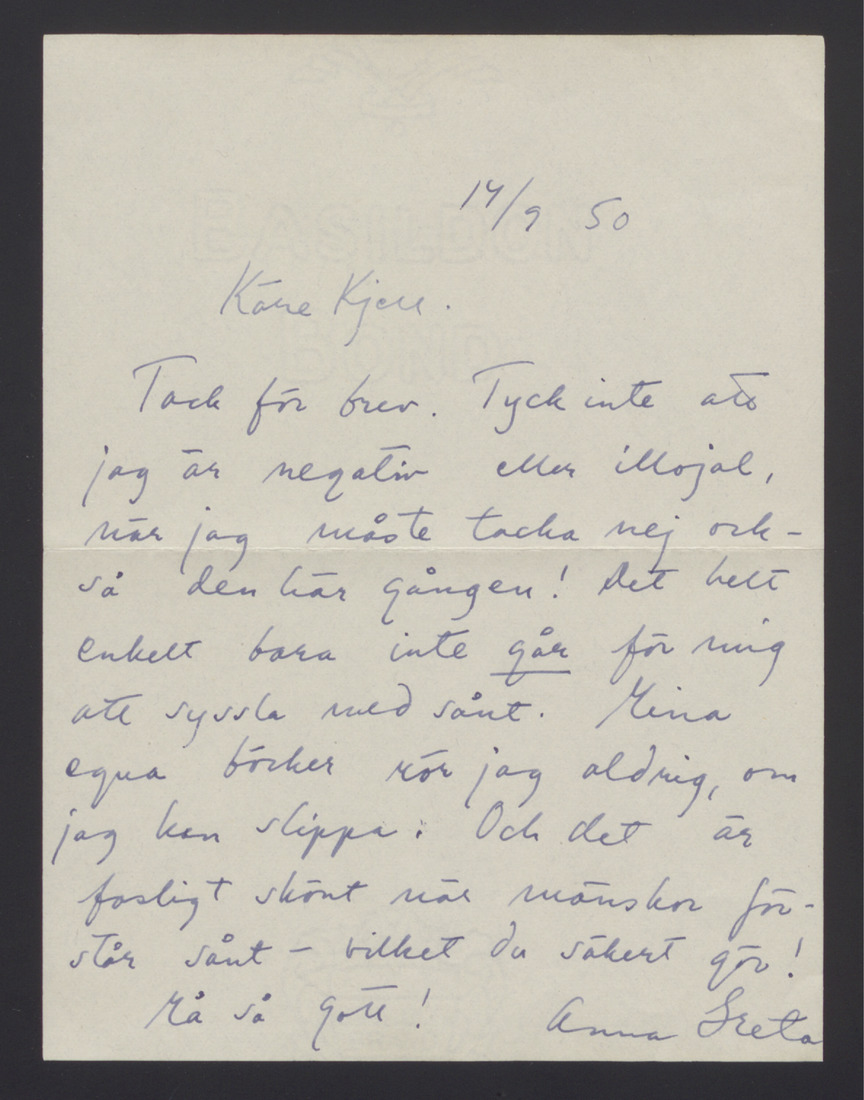 14/9 50
Käre Kjell.
Tack för brev. Tyck inte att
jag är negativ eller illojal,
när jag måste tacka nej ock-
så den här gången! Det helt
enkelt bara inte går för mig
att syssla med sånt. Mina
egna böcker rör jag aldrig, om
jag kan slippa. Och det är
fasligt skönt när mänskor för-
står sånt – vilket du säkert gör!
Må så gott! Anna Greta